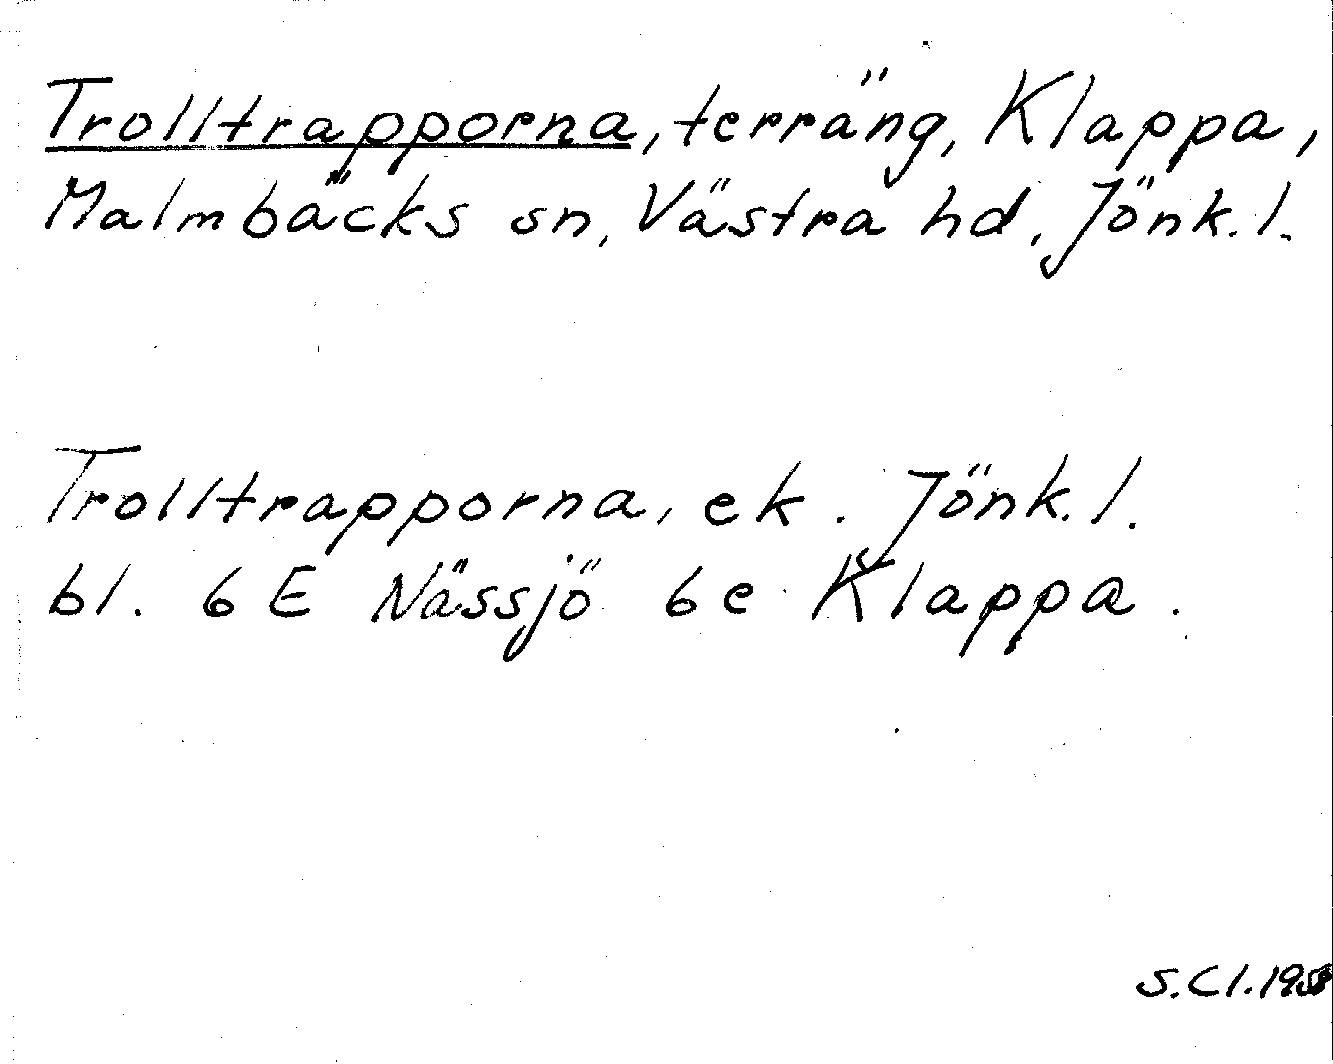 Trolltrapporna, terräng, Klappa,
Malmbäcks sn, Västra hd, Jönk. l.
Trolltrapporna, ek. Jönk. l.
bl. 6 E Nässjö 6 e Klappa.
S. Cl.